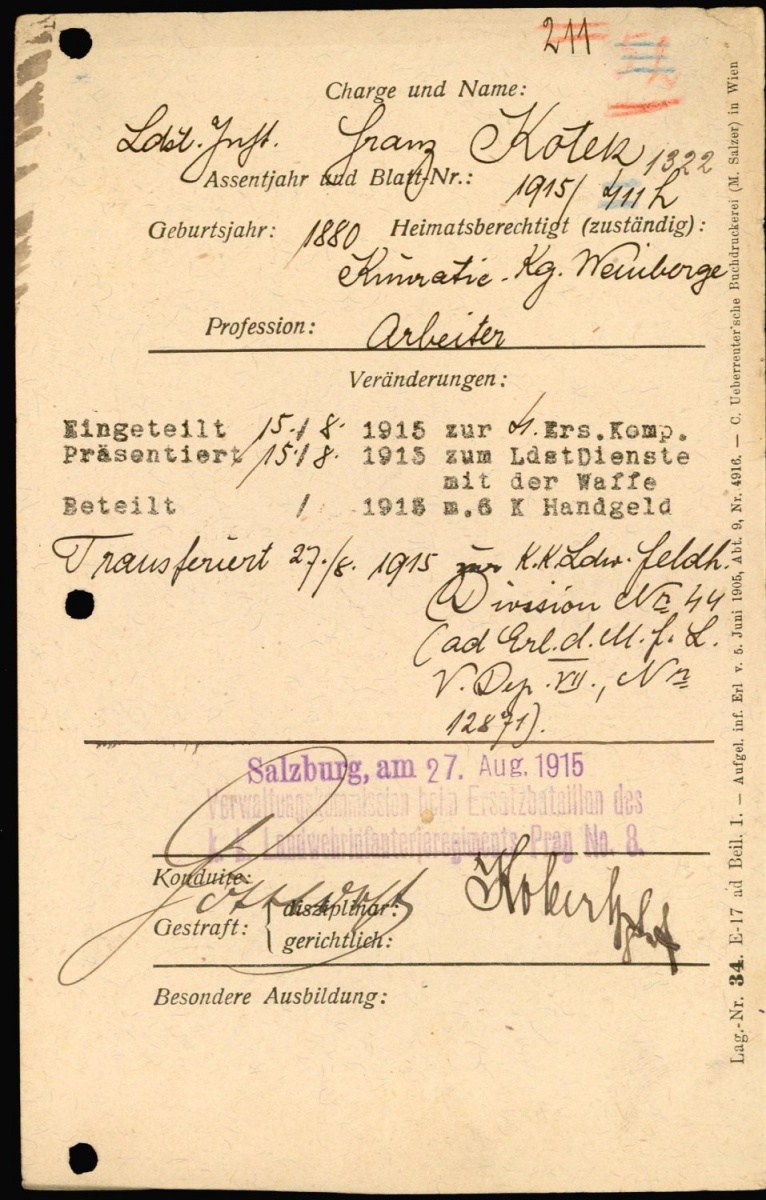 211
Charge und Name:
Ldst. Inft. Franz Kotek 1322
Assentjahr und Blatt-Nr.: 1915/ 411 L
Geburtsjahr: 1880 Heimatsberechtigt (zuständig):
Kunratic. Kg. Weinberge
Profession: Arbeiter
Veränderungen:
Eingeteilt 15./8. 1915 zur 4. Ers.Komp.
Präsentiert 15./8. 1915 zum LdstDienste
mit der Waffe
Beteilt / 1915 m.6 K Handgeld
Transferiert 27./8. 1915 zur K.K. Ldw. feldh.
Division No 44
(ad Erl. d. M. f. L.
V. Dep. VII., No
12871).
Salzburg, am 27. Aug. 1915
Verwaltungskommission beim Ersatzbataillon des
k. k. Landwehrinfanterieregiments Prag No. 8.
Konduite:
Gestraft: { disziplinär:
gerichtlich:
Besondere Ausbildung:
Lag.-Nr. 34. E-17 ad Beil. 1. — Aufgel. inf. Erl v. 5. Juni 1905, Abt. 9, Nr. 4916. — C. Ueberreuter'sche Buchdruckerei (M. Salzer) in Wien